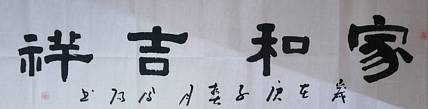 家和吉祥
歲在庚子春月